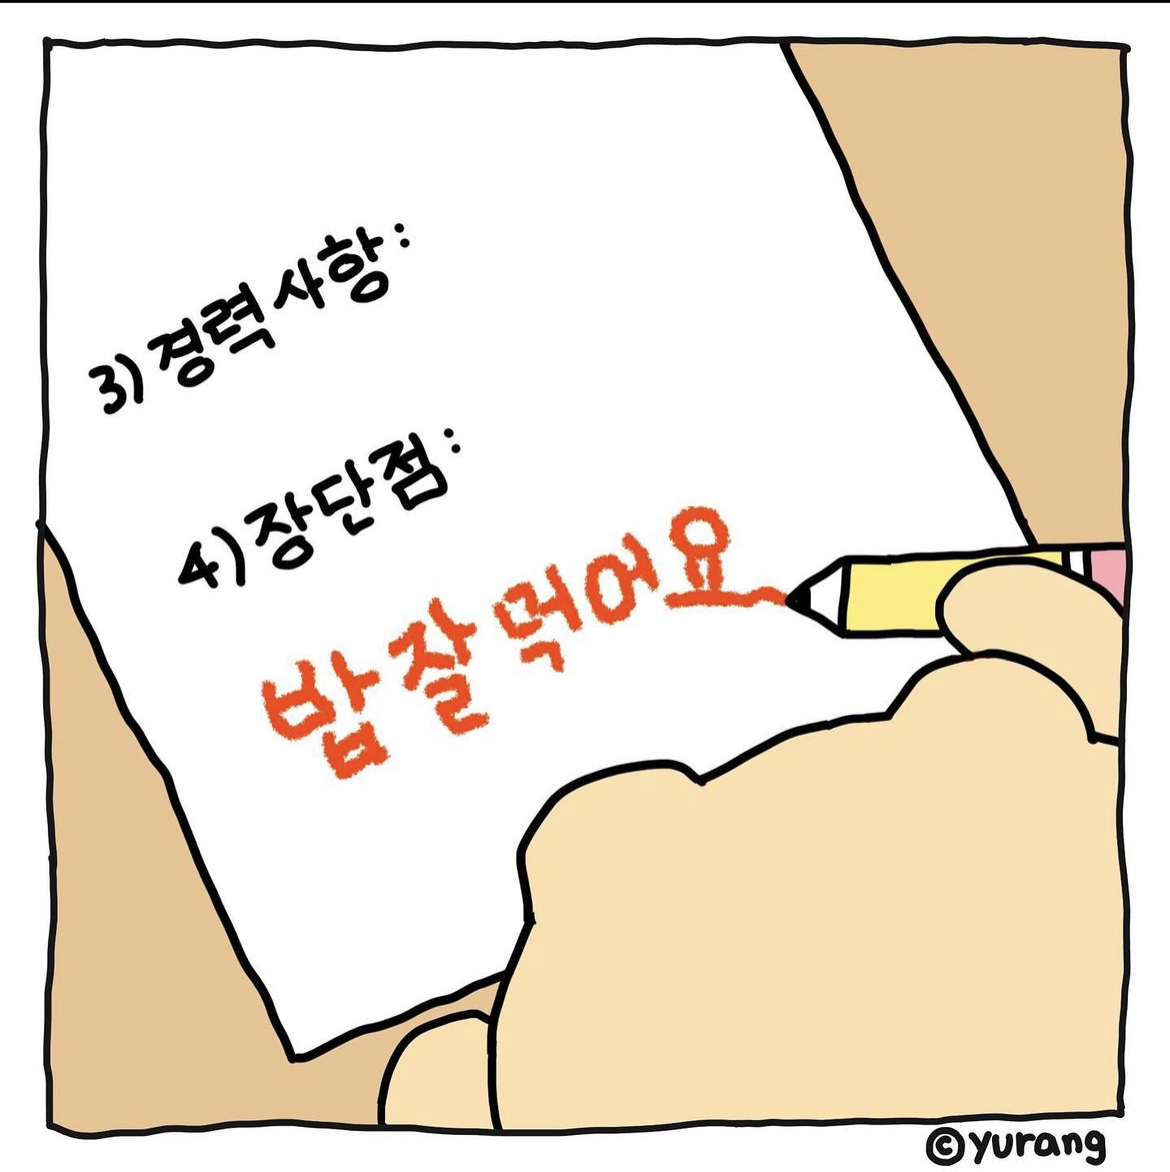 3) 경력사항:
4) 장단점:
밥 잘 먹어요
©yurang